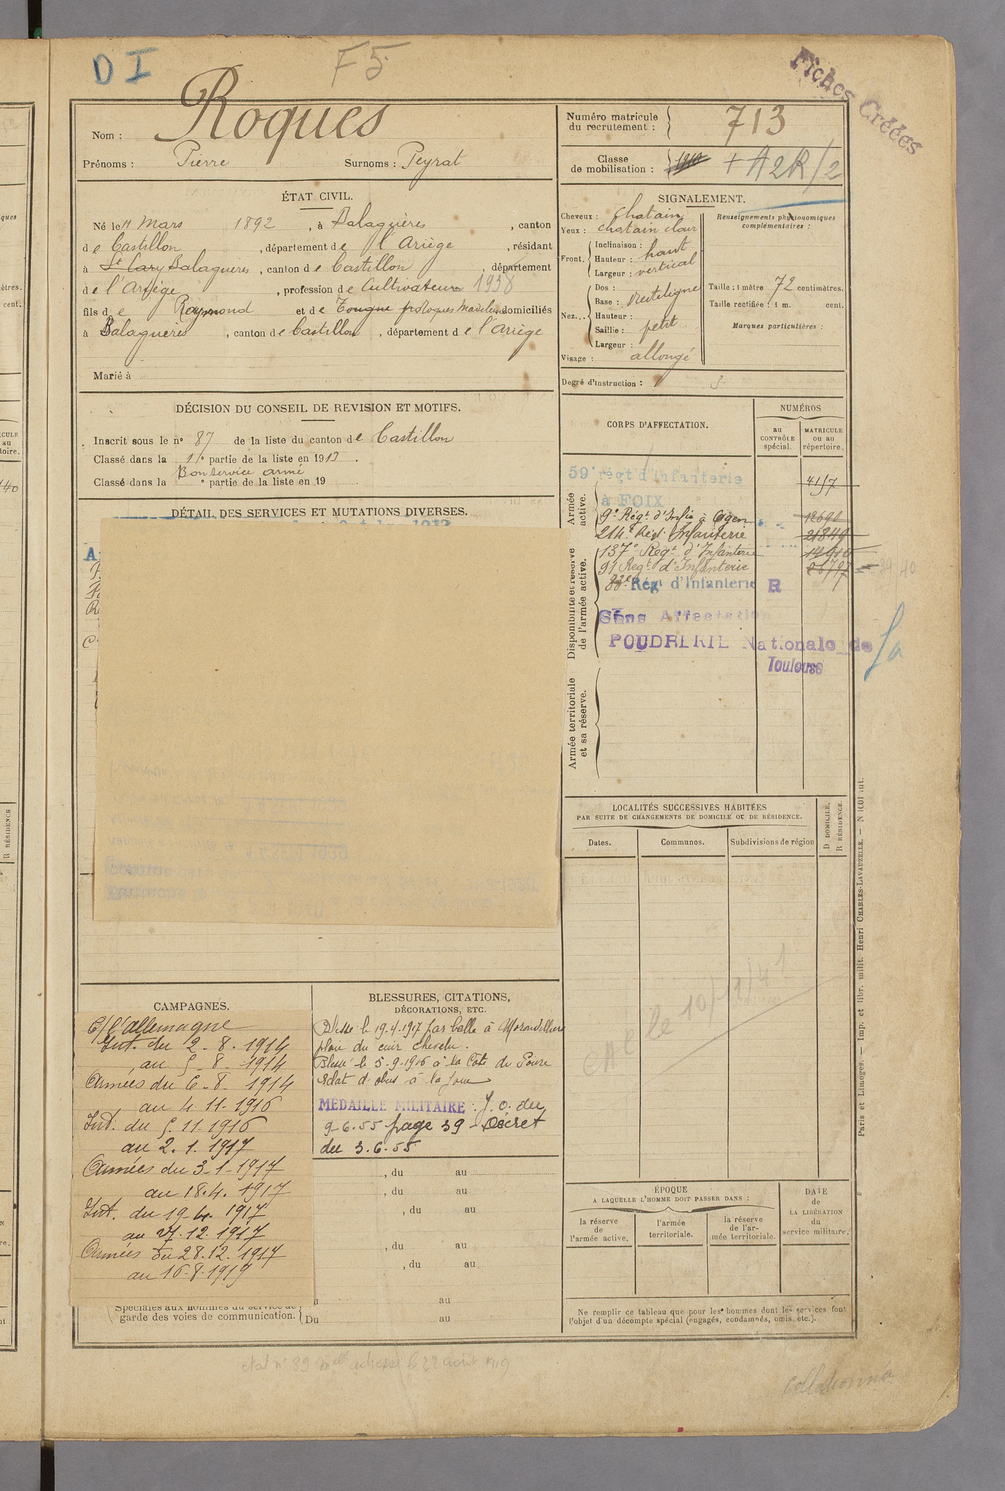 D I
F5
Fiches Créées
Nom : Roques
Prénoms : Pierre Surnoms : Peyrat
Numéro matricule
du recrutement : 713
Classe
de mobilisation : 1910 + A2R/2
ÉTAT CIVIL.
Né le 11 Mars 1892, à Balaguères, canton
de Castillon, département de l'Ariège, résidant
à St Lary Balaguères, canton de Castillon, département
de l'Ariège, profession de Cultivateur 1938
fils de Raymond et de Tougne Roques Madeleine domiciliés
à Balaguères, canton de Castillon, département de l'Ariège
Marié à
SIGNALEMENT.
Cheveux : chatain
Yeux : chatain clair
Front. Inclinaison :
Hauteur : haut
Largeur : vertical
Nez. Dos :
Base : rectiligne
Hauteur :
Saillie : petit
Largeur :
Visage : allongé
Renseignements physionomiques
complémentaires :
Taille : 1 mètre 72 centimètres.
Taille rectifiée : 1 m. cent.
Marques particulières :
Degré d'instruction : 3
DÉCISION DU CONSEIL DE REVISION ET MOTIFS.
Inscrit sous le n° 87 de la liste du canton de Castillon
Classé dans la 1° partie de la liste en 1913.
Bon service armé
Classé dans la ° partie de la liste en 19
DÉTAIL DES SERVICES ET MUTATIONS DIVERSES.
CORPS D'AFFECTATION.
NUMÉROS
au
CONTRÔLE
spécial.
MATRICULE
ou au
répertoire.
Armée
active.
59° régt d'Infanterie
à FOIX
4157
9° Régt d'Infie à Agen
214° Régt Infanterie 21849
Disponibilité et réserve
de l'armée active.
137° Régt d'Infanterie
91 Regt d'Infanterie
Régt d'Infanterie R
Sans Affectation
POUDRERIE Nationale de
Toulouse
Armée territoriale
et sa réserve.
LOCALITÉS SUCCESSIVES HABITÉES
PAR SUITE DE CHANGEMENTS DE DOMICILE OU DE RÉSIDENCE.
Dates.
Communes.
Subdivisions de région
D DOMICILE.
R RÉSIDENCE.
le 10/11/41
CAMPAGNES.
C/ l'allemagne
Int. du 2.8.1914
au 5.8.1914
Armées du 6.8.1914
au 4.11.1916
Int. du 5.11.1916
au 2.1.1917
Armées du 3.1.1917
au 18.4.1917
Int. du 19.4.1917
au 27.12.1917
Armées du 28.12.1917
au 16.8.1919
BLESSURES, CITATIONS,
DÉCORATIONS, ETC.
Blessé le 19.4.1917 par balle à Moronvilliers
plaie du cuir chevelu.
Blessé le 5.9.1916 à la Côte du Poivre
éclat d'obus à la joue
MEDAILLE MILITAIRE : J.O. du
9.6.55 page 39 - Décret
du 3.6.55
, du au
, du au
, du au
, du au
, du au
au
Spéciales aux hommes du service de
garde des voies de communication. Du au
ÉPOQUE
A LAQUELLE L'HOMME DOIT PASSER DANS :
la réserve
de
l'armée active.
l'armée
territoriale.
la réserve
de l'ar-
mée territoriale.
DATE
de
LA LIBÉRATION
du
service militaire.
Ne remplir ce tableau que pour les hommes dont les services font
l'objet d'un décompte spécial (engagés, condamnés, omis, etc.).
Paris et Limoges. — Imp. et libr. milit. Henri CHARLES-LAVAUZELLE.
état n° 89 le 22 août 1919
Collationné